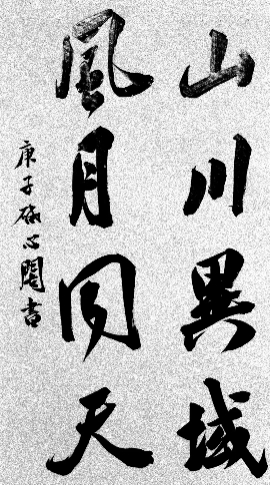 山川異域
風月同天
庚子硯心閣書